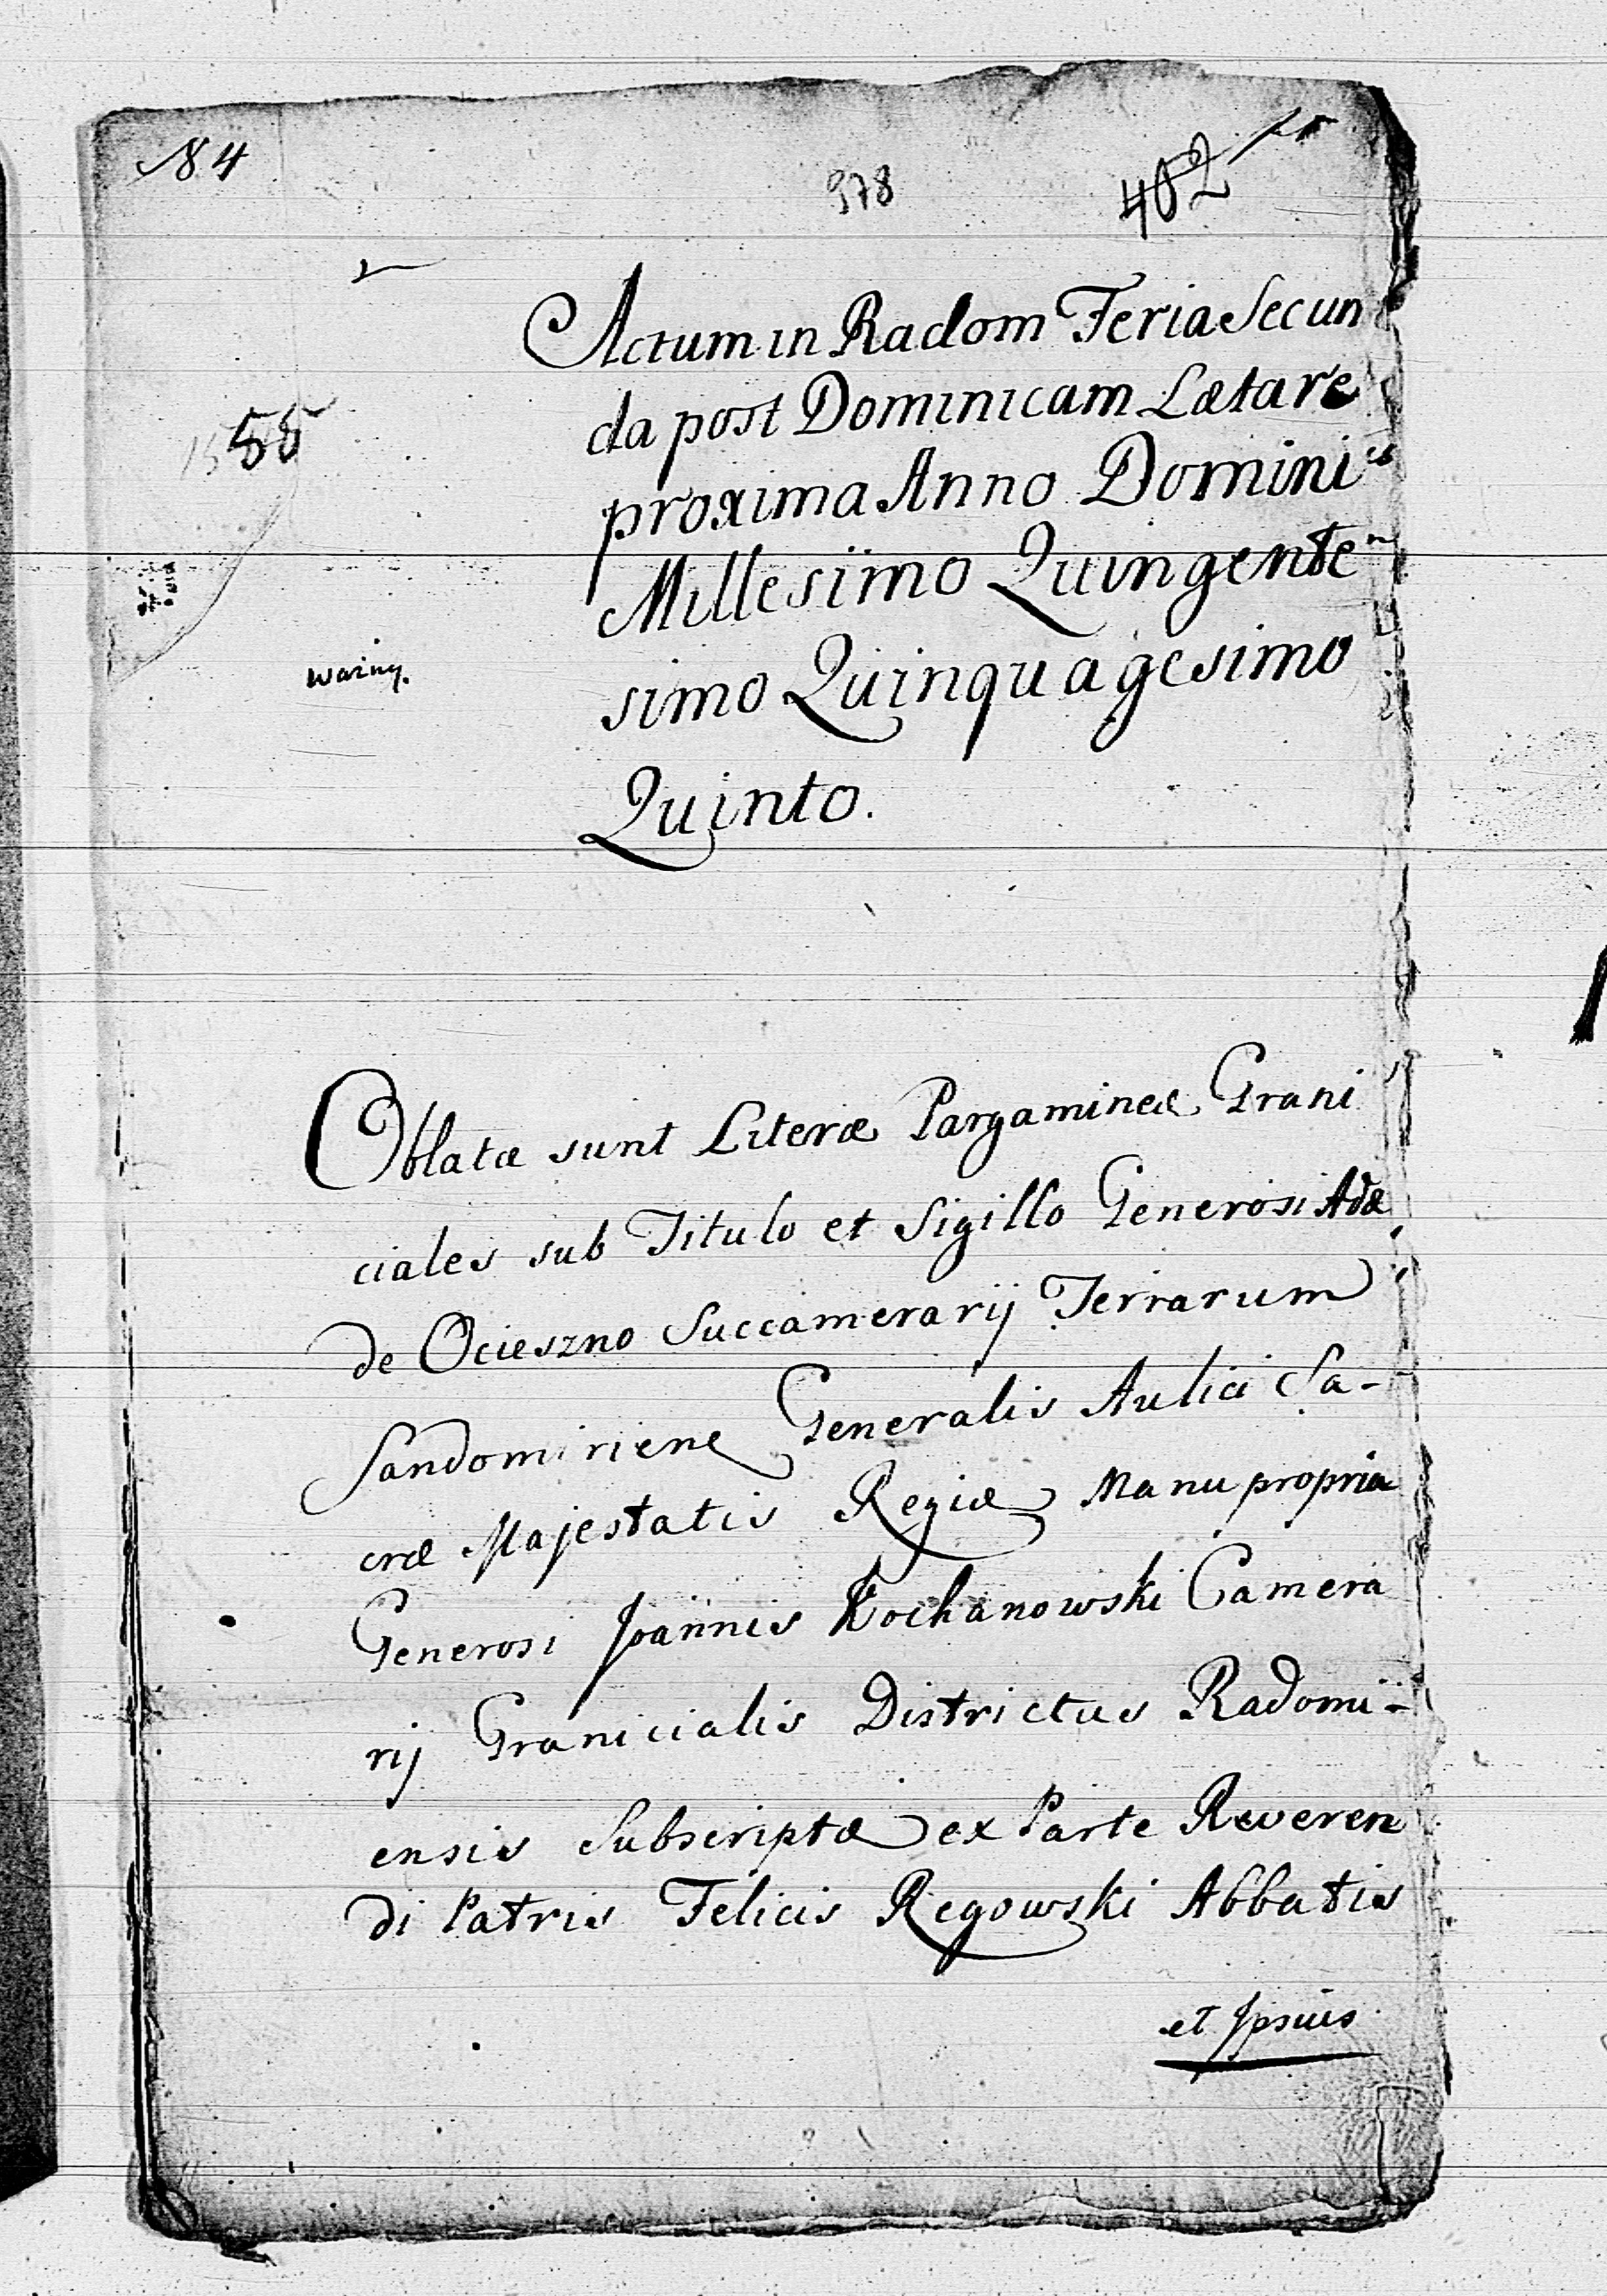 N 4
978
402
Actum in Radom Feria Secun
da post Dominicam Lætare
proxima Anno Domini
Millesimo Quingente
simo Quinquagesimo
Quinto.
55
ważny.
Oblatæ sunt Literæ Pargamineæ Grani
ciales sub Titulo et Sigillo Generosi Adæ
de Ocieszno Succamerarij Terrarum
Sandomiriene Generalis Aulici Sa-
cræ Majestatis Regiæ Manu propria
Generosi Joannis Kochanowski Camera
rij Granicialis Districtus Radomi-
ensis Subscriptæ ex Parte Reveren
di Patris Felicis Regowski Abbatis
et Ipsius